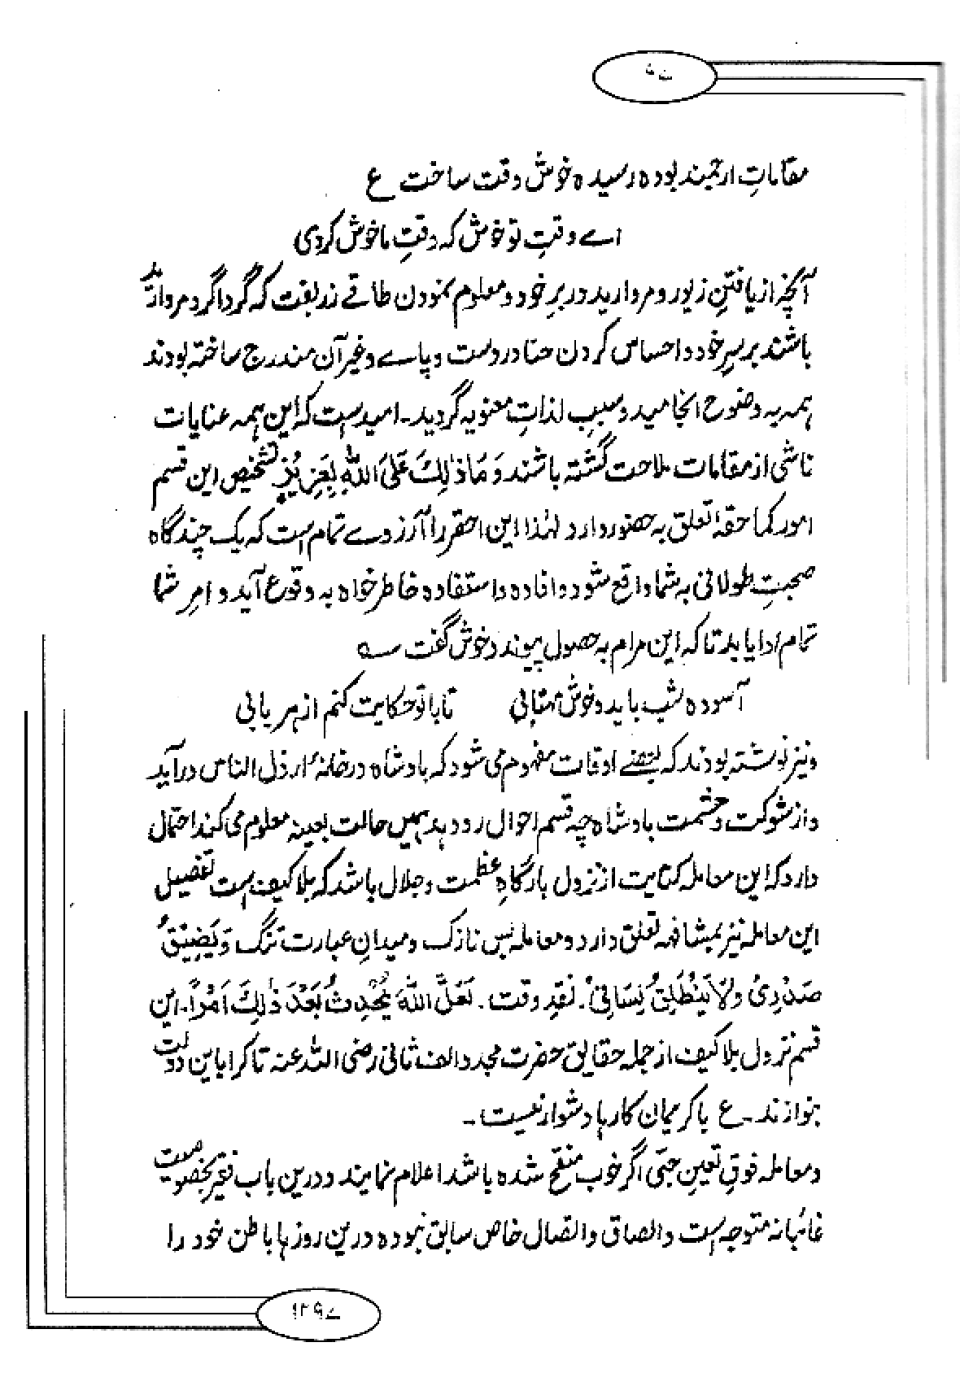 ۹۷
مقاماتِ ارجمند بوده رسیده خوش وقت ساخت ع
اے وقتِ تو خوش که وقتِ ما خوش کردی
آنچه از یافتنِ زیور و مروارید در برِ خود و معلوم نمودن طاقے زربفت که گرداگرد مروارید
باشند بر سرِ خود و احساس کردن حنا در دست و پاے و غیر آن مندرج ساخته بودند
همه به وضوح انجامید و سببِ لذاتِ معنویه گردید۔ امید است که این همه عنایات
ناشی از مقامات ملاحت گشته باشند وَمَا ذٰلِكَ عَلَی اللّٰهِ بِعَزِیْزٍ تشخیص این قسم
امور کما حقه تعلق به حضور دارد لهٰذا این احقر را آرزوے تمام است که یک چند گاه
صحبتِ طولانی به شما واقع شود و افاده و استفاده خاطر خواه به وقوع آید و امرِ شما
تمام ادا یابد تا که این مرام به حصول پیوندد خوش گفت ؎
آسوده شب باید و خوش مهتابی تا با تو حکایت کنم از هر بابی
و نیز نوشته بودند که بعضے اوقات مفهوم می شود که بادشاه در خانهٔ ارذل الناس درآید
و از شوکت و حشمت بادشاه چه قسم احوال رو دهد همیں حالت بعینه معلوم می کند احتمال
دارد که این معامله کنایت از نزول بارگاهِ عظمت و جلال باشد که بلا کیف است تفصیل
این معامله نیز بمشافهه تعلق دارد و معامله بس نازک و میدانِ عبارت تنگ وَیَضِیْقُ
صَدْرِیْ وَلَا یَنْطَلِقُ لِسَانِیْ۔ نقدِ وقت۔ لَعَلَّ اللّٰهَ یُحْدِثُ بَعْدَ ذٰلِكَ اَمْرًا۔ این
قسم نزول بلا کیف از جمله حقایق حضرت مجدد الف ثانی رضی الله عنه تا کرا باین دولت
بنوازند۔ ع با کریمان کارها دشوار نیست۔
و معامله فوقِ تعینِ حبّی اگر خوب منقح شده باشد اعلام نمایند و درین باب فقیر بخصوصیت
غائبانه متوجه است و الصاق و اتصال خاص سابق نبوده درین روزها باطن خود را
۱۲۹۷